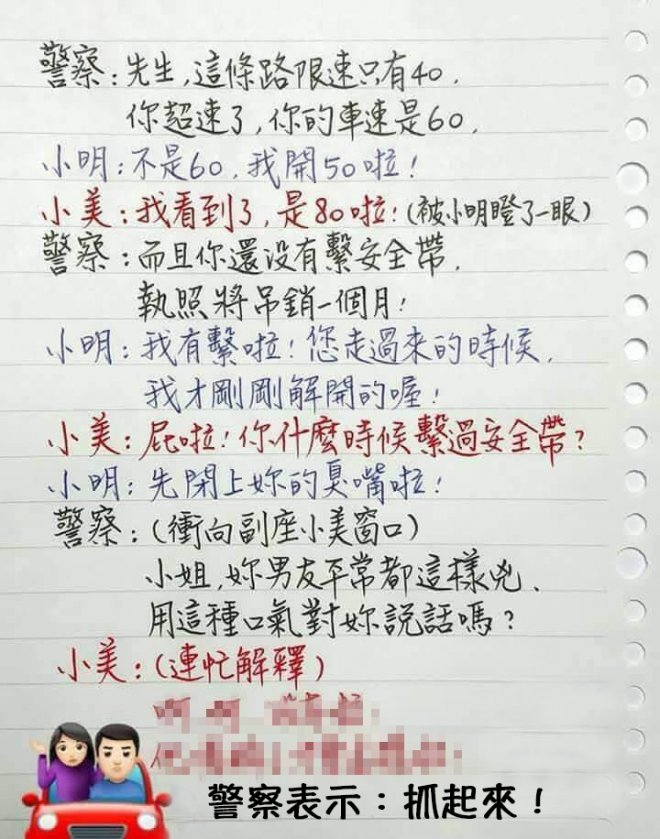 警察：先生，這條路限速只有40，
你超速了，你的車速是60，
小明：不是60，我開50啦！
小美：我看到了，是80啦！(被小明瞪了一眼)
警察：而且你還沒有繫安全帶，
執照將吊銷一個月！
小明：我有繫啦！您走過來的時候，
我才剛剛解開的喔！
小美：屁啦！你什麼時候繫過安全帶？
小明：先閉上妳的臭嘴啦！
警察：(衝向副座小美窗口)
小姐，妳男友平常都這樣兇、
用這種口氣對妳說話嗎？
小美：(連忙解釋)
警察表示：抓起來！